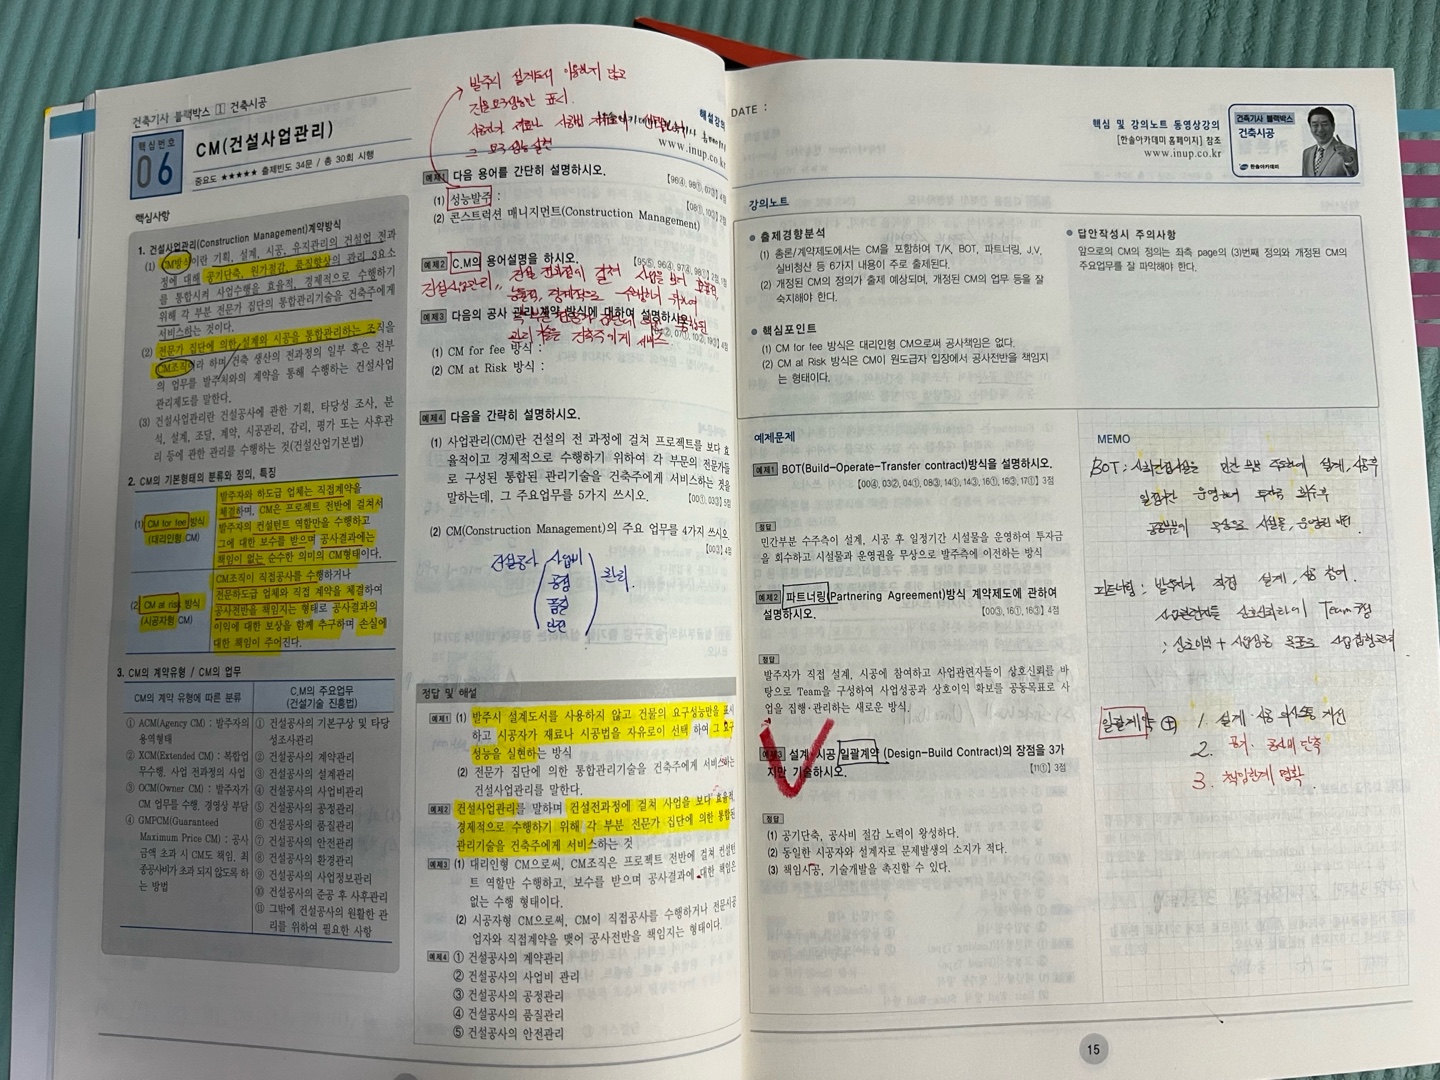 건축기사 블랙박스 1 건축시공
핵심번호
06
CM(건설사업관리)
중요도 ★★★★★ 출제빈도 34문 / 총 30회 시행
핵심사항
1. 건설사업관리(Construction Management)계약방식
(1) CM방식이란 기획, 설계, 시공, 유지관리의 건설업 전과
정에 대해 공기단축, 원가절감, 품질향상의 관리 3요소
를 통합시켜 사업수행을 효율적, 경제적으로 수행하기
위해 각 부분 전문가 집단의 통합관리기술을 건축주에게
서비스하는 것이다.
(2) 전문가 집단에 의한 설계와 시공을 통합관리하는 조직을
CM조직이라 하며 건축 생산의 전과정의 일부 혹은 전부
의 업무를 발주처와의 계약을 통해 수행하는 건설사업
관리제도를 말한다.
(3) 건설사업관리란 건설공사에 관한 기획, 타당성 조사, 분
석, 설계, 조달, 계약, 시공관리, 감리, 평가 또는 사후관
리 등에 관한 관리를 수행하는 것(건설산업기본법)
2. CM의 기본형태의 분류와 정의, 특징
(1) CM for fee 방식
(대리인형 CM)
발주자와 하도급 업체는 직접계약을
체결하며, CM은 프로젝트 전반에 걸쳐서
발주자의 컨설턴트 역할만을 수행하고
그에 대한 보수를 받으며 공사결과에는
책임이 없는 순수한 의미의 CM형태이다.
(2) CM at risk 방식
(시공자형 CM)
CM조직이 직접공사를 수행하거나
전문하도급 업체와 직접 계약을 체결하여
공사전반을 책임지는 형태로 공사결과의
이익에 대한 보상을 함께 추구하며 손실에
대한 책임이 주어진다.
3. CM의 계약유형 / CM의 업무
CM의 계약 유형에 따른 분류
① ACM(Agency CM) : 발주자의
용역형태
② XCM(Extended CM) : 복합업
무수행, 사업 전과정의 사업
③ OCM(Owner CM) : 발주자가
CM 업무를 수행, 경영상 부담
④ GMPCM(Guaranteed
Maximum Price CM) : 공사
금액 초과 시 CM도 책임, 최
종공사비가 초과 되지 않도록 하
는 방법
C.M의 주요업무
(건설기술 진흥법)
① 건설공사의 기본구상 및 타당
성조사관리
② 건설공사의 계약관리
③ 건설공사의 설계관리
④ 건설공사의 사업비관리
⑤ 건설공사의 공정관리
⑥ 건설공사의 품질관리
⑦ 건설공사의 안전관리
⑧ 건설공사의 환경관리
⑨ 건설공사의 사업정보관리
⑩ 건설공사의 준공 후 사후관리
⑪ 그밖에 건설공사의 원활한 관
리를 위하여 필요한 사항
발주시 설계도서 이용하지 않고
건물요구성능만 표시.
시공자가 재료나 시공법
그 요구 성능 실현
해설강의
www.inup.co.kr
예제1 다음 용어를 간단히 설명하시오.
【96④, 98①, 07③】 4점
(1) 성능발주 :
【08①, 10③】 2점
(2) 콘스트럭션 매니지먼트(Construction Management)
예제2 C.M의 용어설명을 하시오.
【95⑤, 96④, 97④, 98①】 2점
건설사업관리,, 건설 전과정에 걸쳐 사업을 보다 효율적,
능률적, 경제적으로 수행하기 위하여
각 부분 전문가 집단에 의한 통합된
관리 기술을 건축주에게 서비스
예제3 다음의 공사 관리계약 방식에 대하여 설명하시오.
(1) CM for fee 방식 :
(2) CM at Risk 방식 :
예제4 다음을 간략히 설명하시오.
(1) 사업관리(CM)란 건설의 전 과정에 걸쳐 프로젝트를 보다 효
율적이고 경제적으로 수행하기 위하여 각 부문의 전문가들
로 구성된 통합된 관리기술을 건축주에게 서비스하는 것을
말하는데, 그 주요업무를 5가지 쓰시오.
【00①, 03③】 5점
(2) CM(Construction Management)의 주요 업무를 4가지 쓰시오.
【00③】 4점
건설공사 사업비 관리.
공정
품질
안전
정답 및 해설
예제1 (1) 발주시 설계도서를 사용하지 않고 건물의 요구성능만을 표시
하고 시공자가 재료나 시공법을 자유로이 선택 하여 그 요구
성능을 실현하는 방식
(2) 전문가 집단에 의한 통합관리기술을 건축주에게 서비스하는
건설사업관리를 말한다.
예제2 건설사업관리를 말하며 건설전과정에 걸쳐 사업을 보다 효율적,
경제적으로 수행하기 위해 각 부분 전문가 집단에 의한 통합된
관리기술을 건축주에게 서비스하는 것
예제3 (1) 대리인형 CM으로써, CM조직은 프로젝트 전반에 걸쳐 컨설턴
트 역할만 수행하고, 보수를 받으며 공사결과에 대한 책임은
없는 수행 형태이다.
(2) 시공자형 CM으로써, CM이 직접공사를 수행하거나 전문시공
업자와 직접계약을 맺어 공사전반을 책임지는 형태이다.
예제4 ① 건설공사의 계약관리
② 건설공사의 사업비 관리
③ 건설공사의 공정관리
④ 건설공사의 품질관리
⑤ 건설공사의 안전관리
DATE :
핵심 및 강의노트 동영상강의
[한솔아카데미 홈페이지] 참조
www.inup.co.kr
건축기사 블랙박스
건축시공
한솔아카데미
강의노트
● 출제경향분석
(1) 총론/계약제도에서는 CM을 포함하여 T/K, BOT, 파트너링, J.V,
실비청산 등 6가지 내용이 주로 출제된다.
(2) 개정된 CM의 정의가 출제 예상되며, 개정된 CM의 업무 등을 잘
숙지해야 한다.
● 핵심포인트
(1) CM for fee 방식은 대리인형 CM으로써 공사책임은 없다.
(2) CM at Risk 방식은 CM이 원도급자 입장에서 공사전반을 책임지
는 형태이다.
● 답안작성시 주의사항
앞으로의 CM의 정의는 좌측 page의 (3)번째 정의와 개정된 CM의
주요업무를 잘 파악해야 한다.
예제문제
예제1 BOT(Build-Operate-Transfer contract)방식을 설명하시오.
【00④, 03②, 04①, 08③, 14①, 14③, 16①, 16③, 17①】 3점
정답
민간부분 수주측이 설계, 시공 후 일정기간 시설물을 운영하여 투자금
을 회수하고 시설물과 운영권을 무상으로 발주측에 이전하는 방식
예제2 파트너링(Partnering Agreement)방식 계약제도에 관하여
설명하시오.
【00③, 16①, 16③】 4점
정답
발주자가 직접 설계, 시공에 참여하고 사업관련자들이 상호신뢰를 바
탕으로 Team을 구성하여 사업성공과 상호이익 확보를 공동목표로 사
업을 집행·관리하는 새로운 방식.
예제3 설계·시공 일괄계약 (Design-Build Contract)의 장점을 3가
지만 기술하시오.
【11①】 3점
정답
(1) 공기단축, 공사비 절감 노력이 왕성하다.
(2) 동일한 시공자와 설계자로 문제발생의 소지가 적다.
(3) 책임시공, 기술개발을 촉진할 수 있다.
MEMO
BOT : 사회간접시설을 민간 부분 주도하에 설계, 시공후
일정기간 운영하여 투자금 회수후
공공부분에 무상으로 시설물, 운영권 이전.
파트너링 : 발주자가 직접 설계, 시공 참여.
사업관련자들 상호신뢰하에 Team구성
; 상호이익 + 사업성공 목표로 사업집행관리
일괄계약 ⊕ 1. 설계·시공 의사소통 개선
2. 공기·공사비 단축
3. 책임한계 명확
15